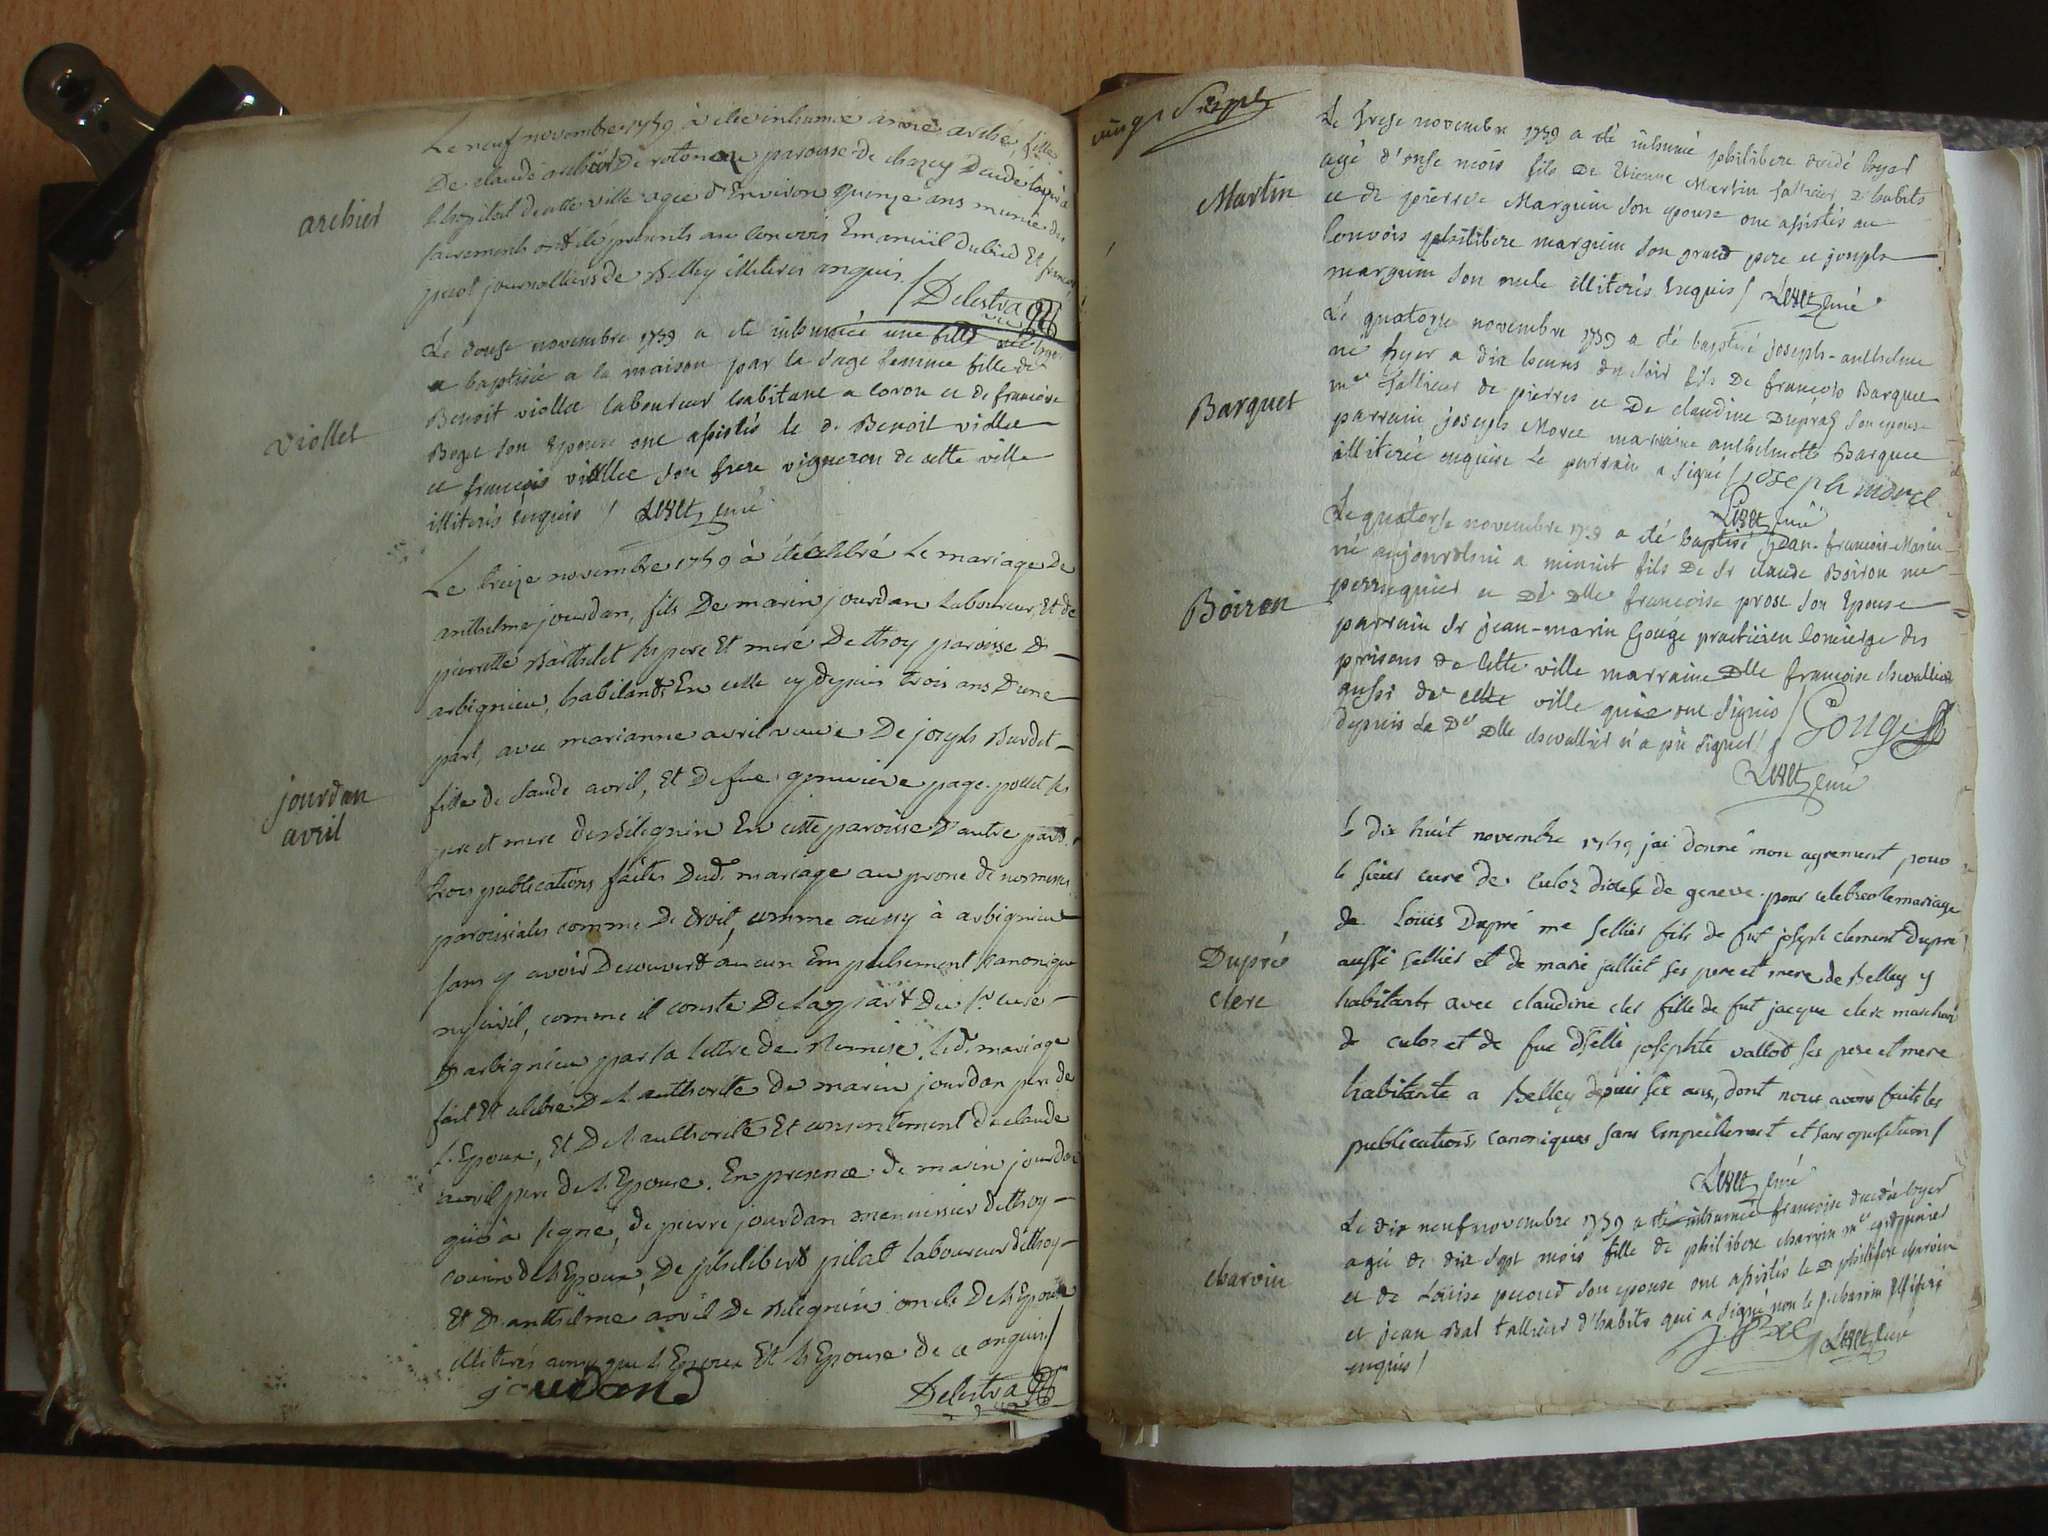 archier
Le neuf novembre 1759 à été inhumée anne archer, fille
De claude De rotonex paroisse de chazey Decedé
l'hopital de cette ville agee d'Environ quinze ans munie des
sacrements ont été presents au convois Emanuël dubied Et francois
picot journalliers de Belley illiterés enquis / Delestra vic
viollet
Le douse novembre 1759 a été inhumée une fille née hyer
et baptisée a la maison par la sage femme fille de
Benoit viollet laboureur habitant a coron et de francoise
Boget son Epouse ont assistés le d. Benoit viollet
et francois viollet son frere vigneron de cette ville
illiterés enquis / curé
jourdan
avril
Le treize novembre 1759 à été celebré Le mariage De
anthelme jourdan, fils De marin jourdan Laboureur, Et de
pierrette Barthelet ses pere Et mere De thoy paroisse D
arbignieu, habitant En celle cy depuis trois ans D'une
part, avec marianne avril veuve De joseph Burdet
fille de claude avril, Et De fue genevieve page pollet ses
pere et mere de Billignin En cette paroisse D'autre part,
trois publications faites Dud. mariage au prone de nos messes
paroissiales comme De droit, comme aussy à arbignieu
sans y avoir Decouvert aucun Empechement Canonique
ny civil, comme il conste De la part Du sr curé
D'arbignieu par sa lettre de Remise. Led. mariage
fait Et celebré De L'authorité De marin jourdan pere de
L'Epoux, Et De L'authorité Et consentement de claude
avril pere de L'Epouse. En presence de marin jourdan
qui à signé, de pierre jourdan menuisier de thoy
cousin de L'Epoux, De philibert pilat laboureur de thoy
Et D'anthelme avril De Billignin oncle De L'Epouse
illiterés ainsy que L'Epoux Et L'Epouse de ce enquis /
jourdand Delestra vic
vingt Sept
Martin
Le trese novembre 1759 a été inhumé philibert decedé hyer
agé d'onse mois fils De Etienne Martin tallieur d'habits
et de pierrete Marguin son epouse ont assistés au
convois philibert marguin son grand pere et joseph
marguin son oncle illiterés Enquis / curé
Barquet
Le quatorse novembre 1759 a été baptisé joseph-anthelme
né hyer a dix heures du soir fils De francois Barquet
me tallieur de pierres et De claudine Dupraz son epouse
parrain joseph Morel marraine anthelmette Barquet
illiterée enquise Le parrain a signé / joseph morel
curé
Boiron
Le quatorse novembre 1759 a été baptisé jean-francois-Marin
né aujourdhui a minuit fils De Sr claude Boiron me
perruquier et De Dlle francoise prost son Epouse
parrain Sr jean-marin Gouge practicien concierge des
prisons de cette ville marraine Dlle francoise chevallier
aussi de cette ville qui ont signés / Gouge
depuis La De Dlle chevallier n'a pu signer /
curé
Dupré
clerc
le dix huit novembre 1759 jai donné mon agrement pour
le sieur curé de culoz diocese de geneve pour celebrer le mariage
de Louis Dupré me sellier fils de fut joseph clement dupré
aussi sellier et de marie julliet ses pere et mere de Belley y
habitants avec claudine clerc fille de fut jacque clerc marchand
de culoz et de fue dselle josephte vallod ses pere et mere
habitante a Belley depuis six ans, dont nous avons faits les
publications canoniques sans Empechement et sans oposition /
curé
charvin
Le dix neuf novembre 1759 a été inhumée francoise decedée hyer
agée de dix sept mois fille de philibert charvin me cordonnier
et de Louise picoud son epouse ont assistés le D philibert charvin
et jean Bal tallieur d'habits qui a signé non le charvin illiteré
enquis / curé